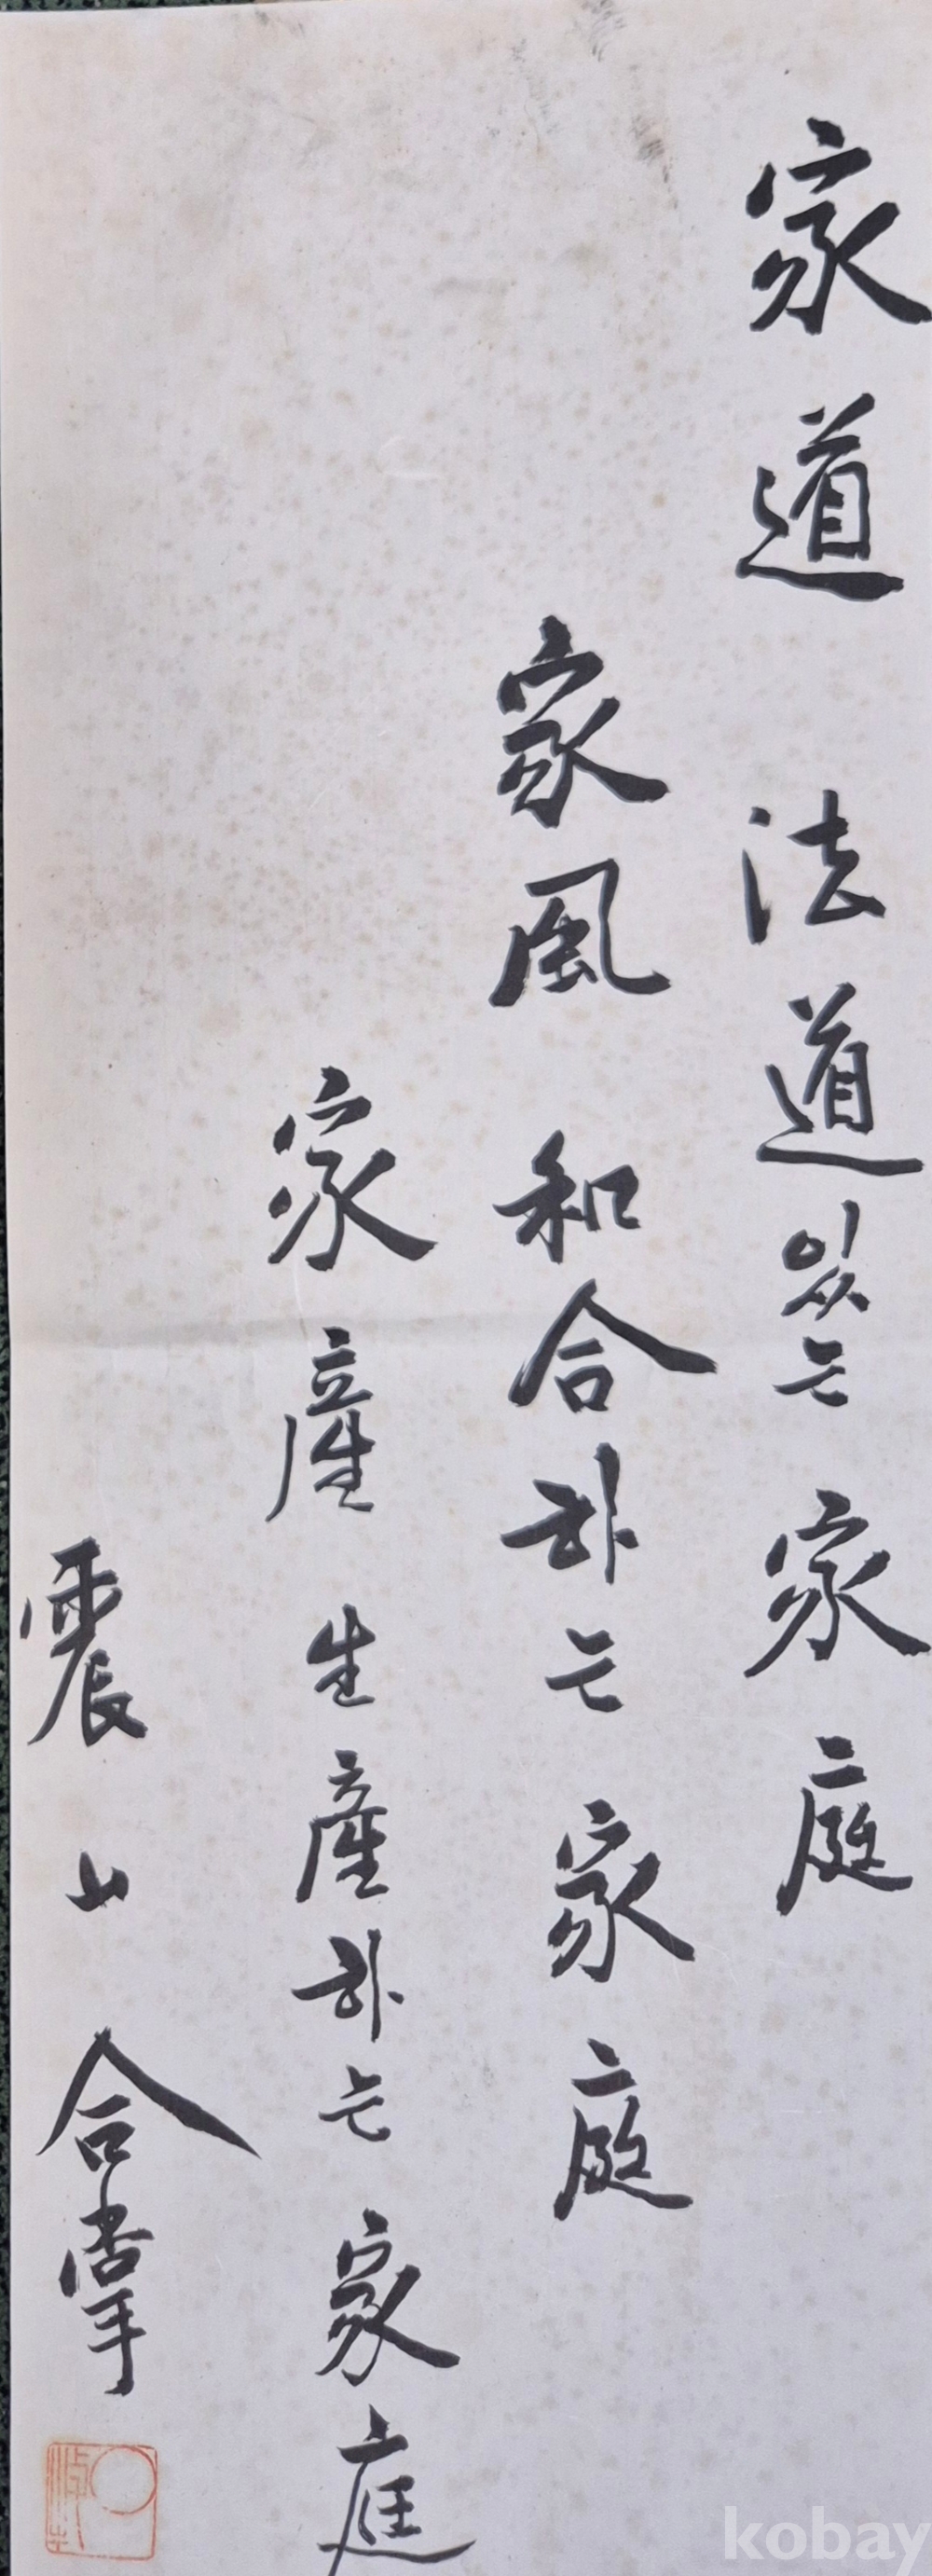 家道 法道있는 家庭
家風 和合하는 家庭
家產 生產하는 家庭
震山 合掌
kobay